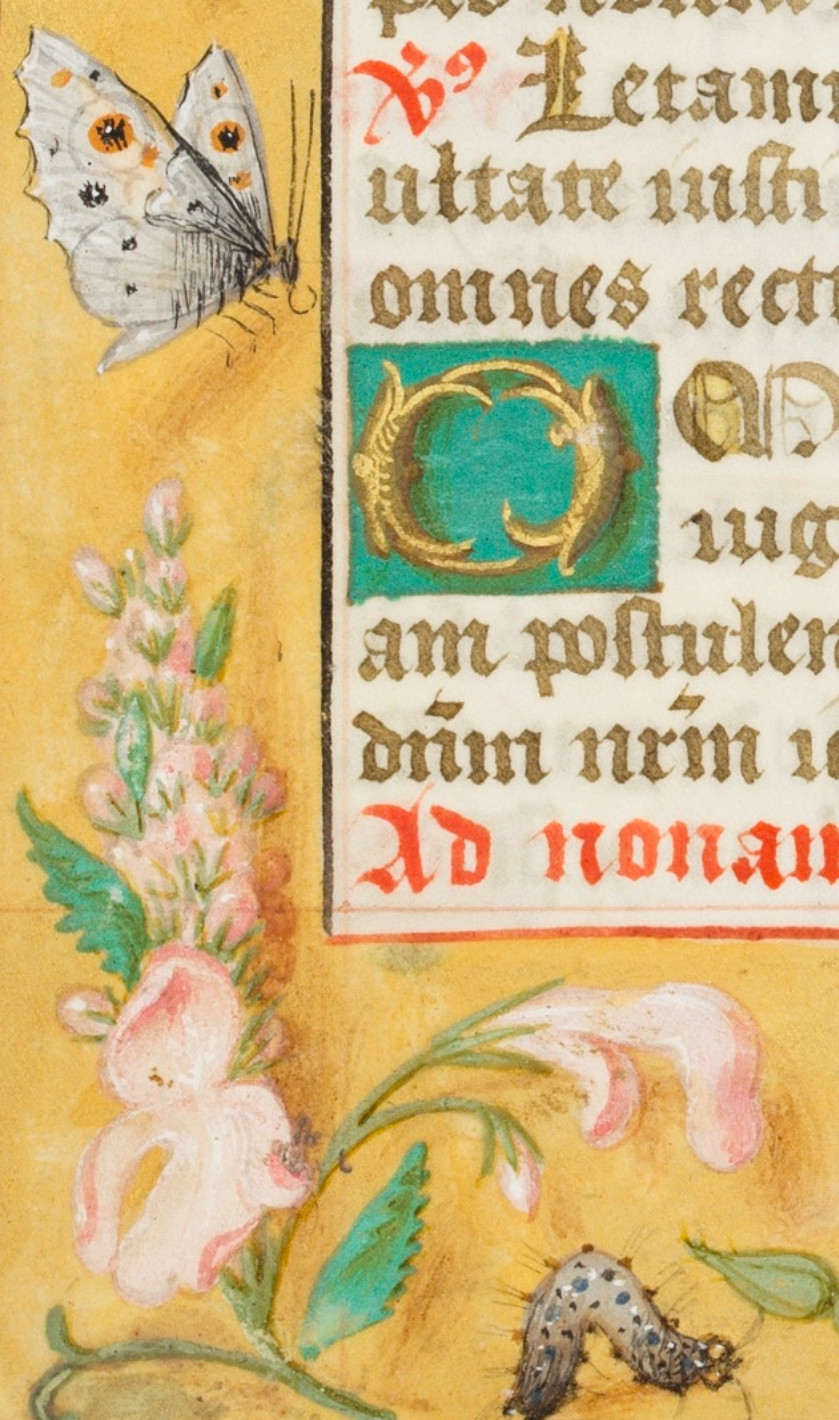 V⁹ Letami
ultate iusti
omnes recti
OM
iug
am postulen
dn̄m nr̄m i
Ad nonam